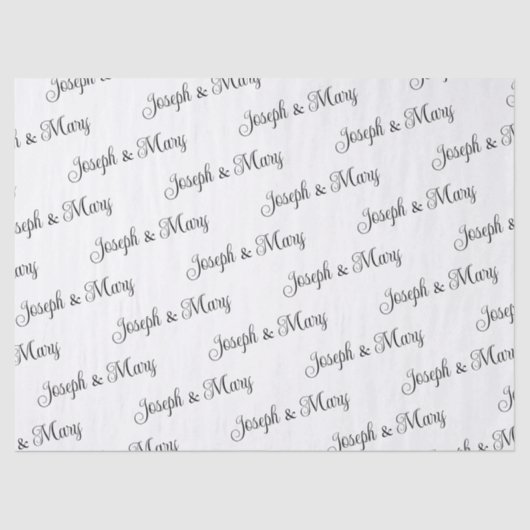 Joseph &
Joseph & Mary
Joseph & Mary
Joseph & Mary
Joseph &
& Mary
Joseph & Mary
Joseph & Mary
Joseph & Mary
Joseph & Mary
Joseph &
seph & Mary
Joseph & Mary
Joseph & Mary
Joseph & Mary
Joseph & Mary
Joseph
Mary
Joseph & Mary
Joseph & Mary
Joseph & Mary
Joseph & Mary
Joseph & Mary
& Mary
Joseph & Mary
Joseph & Mary
Joseph & Mary
Joseph & Mary
Joseph
ph & Mary